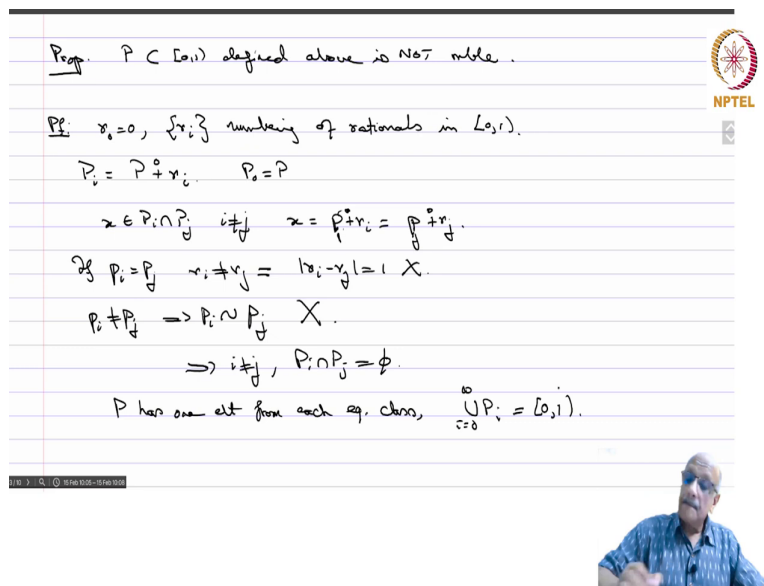 Prop. P ⊂ [0,1) defined above is NOT mble.
NPTEL
Pf: r₀=0, {rᵢ} numbering of rationals in [0,1).
Pᵢ = P +° rᵢ. P₀ = P
x ∈ Pᵢ∩Pⱼ i≠j x = pᵢ +° rᵢ = pⱼ +° rⱼ.
If pᵢ = pⱼ rᵢ ≠ rⱼ = |rᵢ - rⱼ| = 1 X.
pᵢ ≠ pⱼ ⇒ pᵢ ~ pⱼ X.
⇒ i≠j, Pᵢ∩Pⱼ = φ.
P has one elt from each eq. class, ∞∪i=0 Pᵢ = [0,1).
3/10 15 Feb 10:05 - 15 Feb 10:08